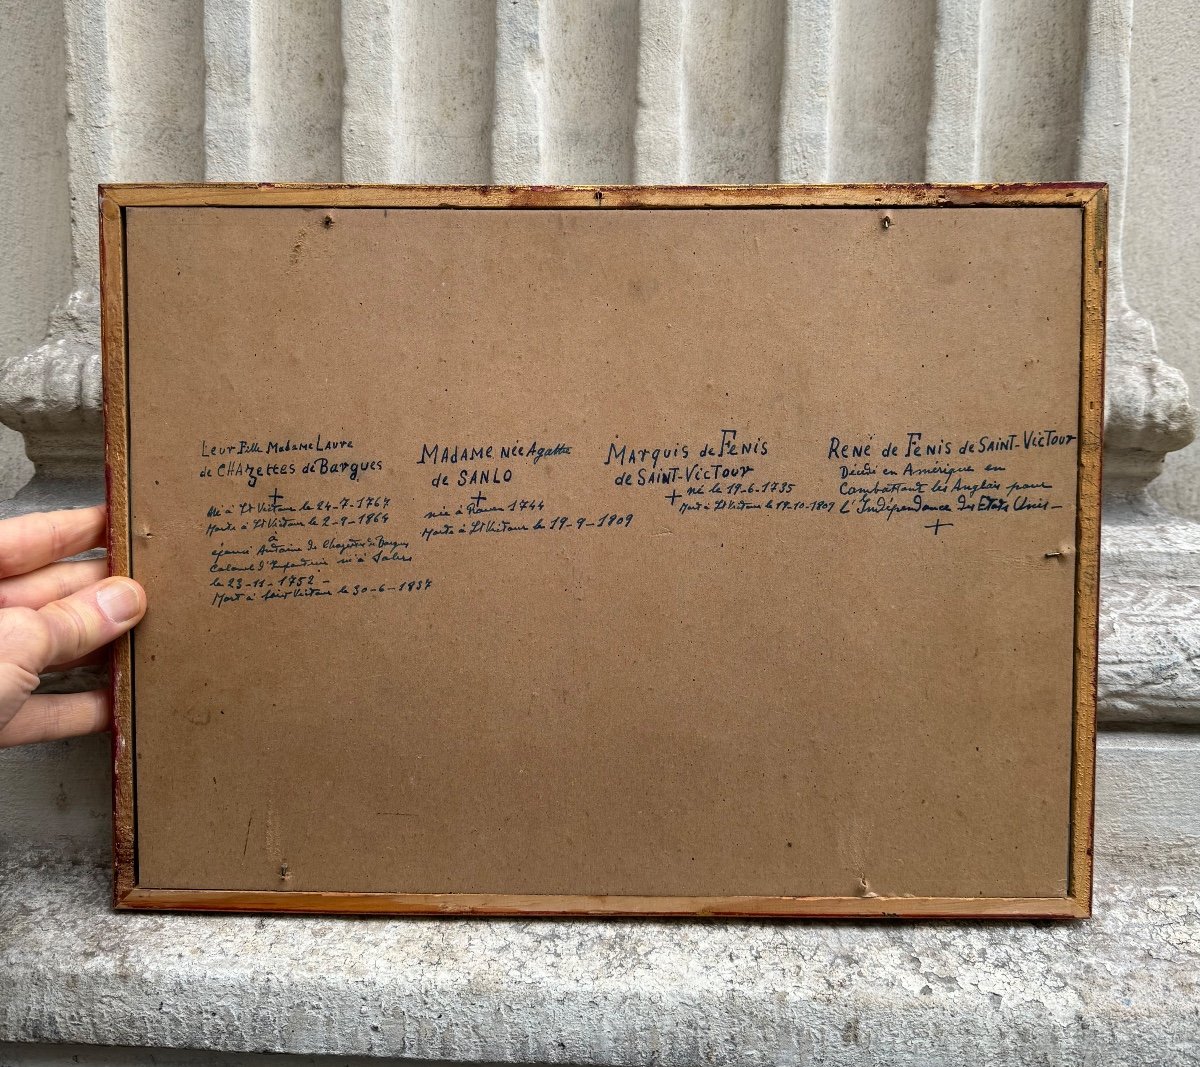 Leur Fille Madame Laure
de CHAzettes de Bargues
à St Victour le 24-7-1767
Morte à St Victour le 2-9-1864
à
épousé Antoine de Chazettes de Bargues
Colonel d'Infanterie né à
le 23-11-1752 -
Mort à Saint Victour le 30-6-1837
MADAME Née Agathe
de SANLO
née à Rouen 1744
Morte à St Victour le 19-9-1809
MARquis de FENIS
de SAINT-VICTour
né le 19-6-1735
Mort à St Victour le 17-10-1807
René de FENIS de SAINT-VICTour
Décédé en Amérique en
Combattant les Anglais pour
l'Indépendance des Etats Unis -